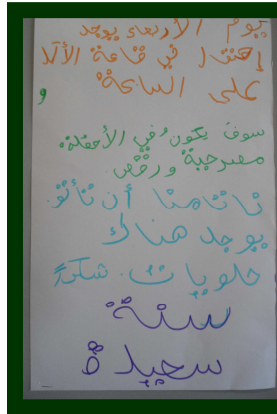 يوم الأربعاء يوجد
إحتفال في قاعة الأكل
على الساعة
و
سوف يكون في الأحفلة
مصرحية ورقص.
نتامنا أن تأتو.
يوجد هناك
حلويات. شكراً
سنة
سعيدة